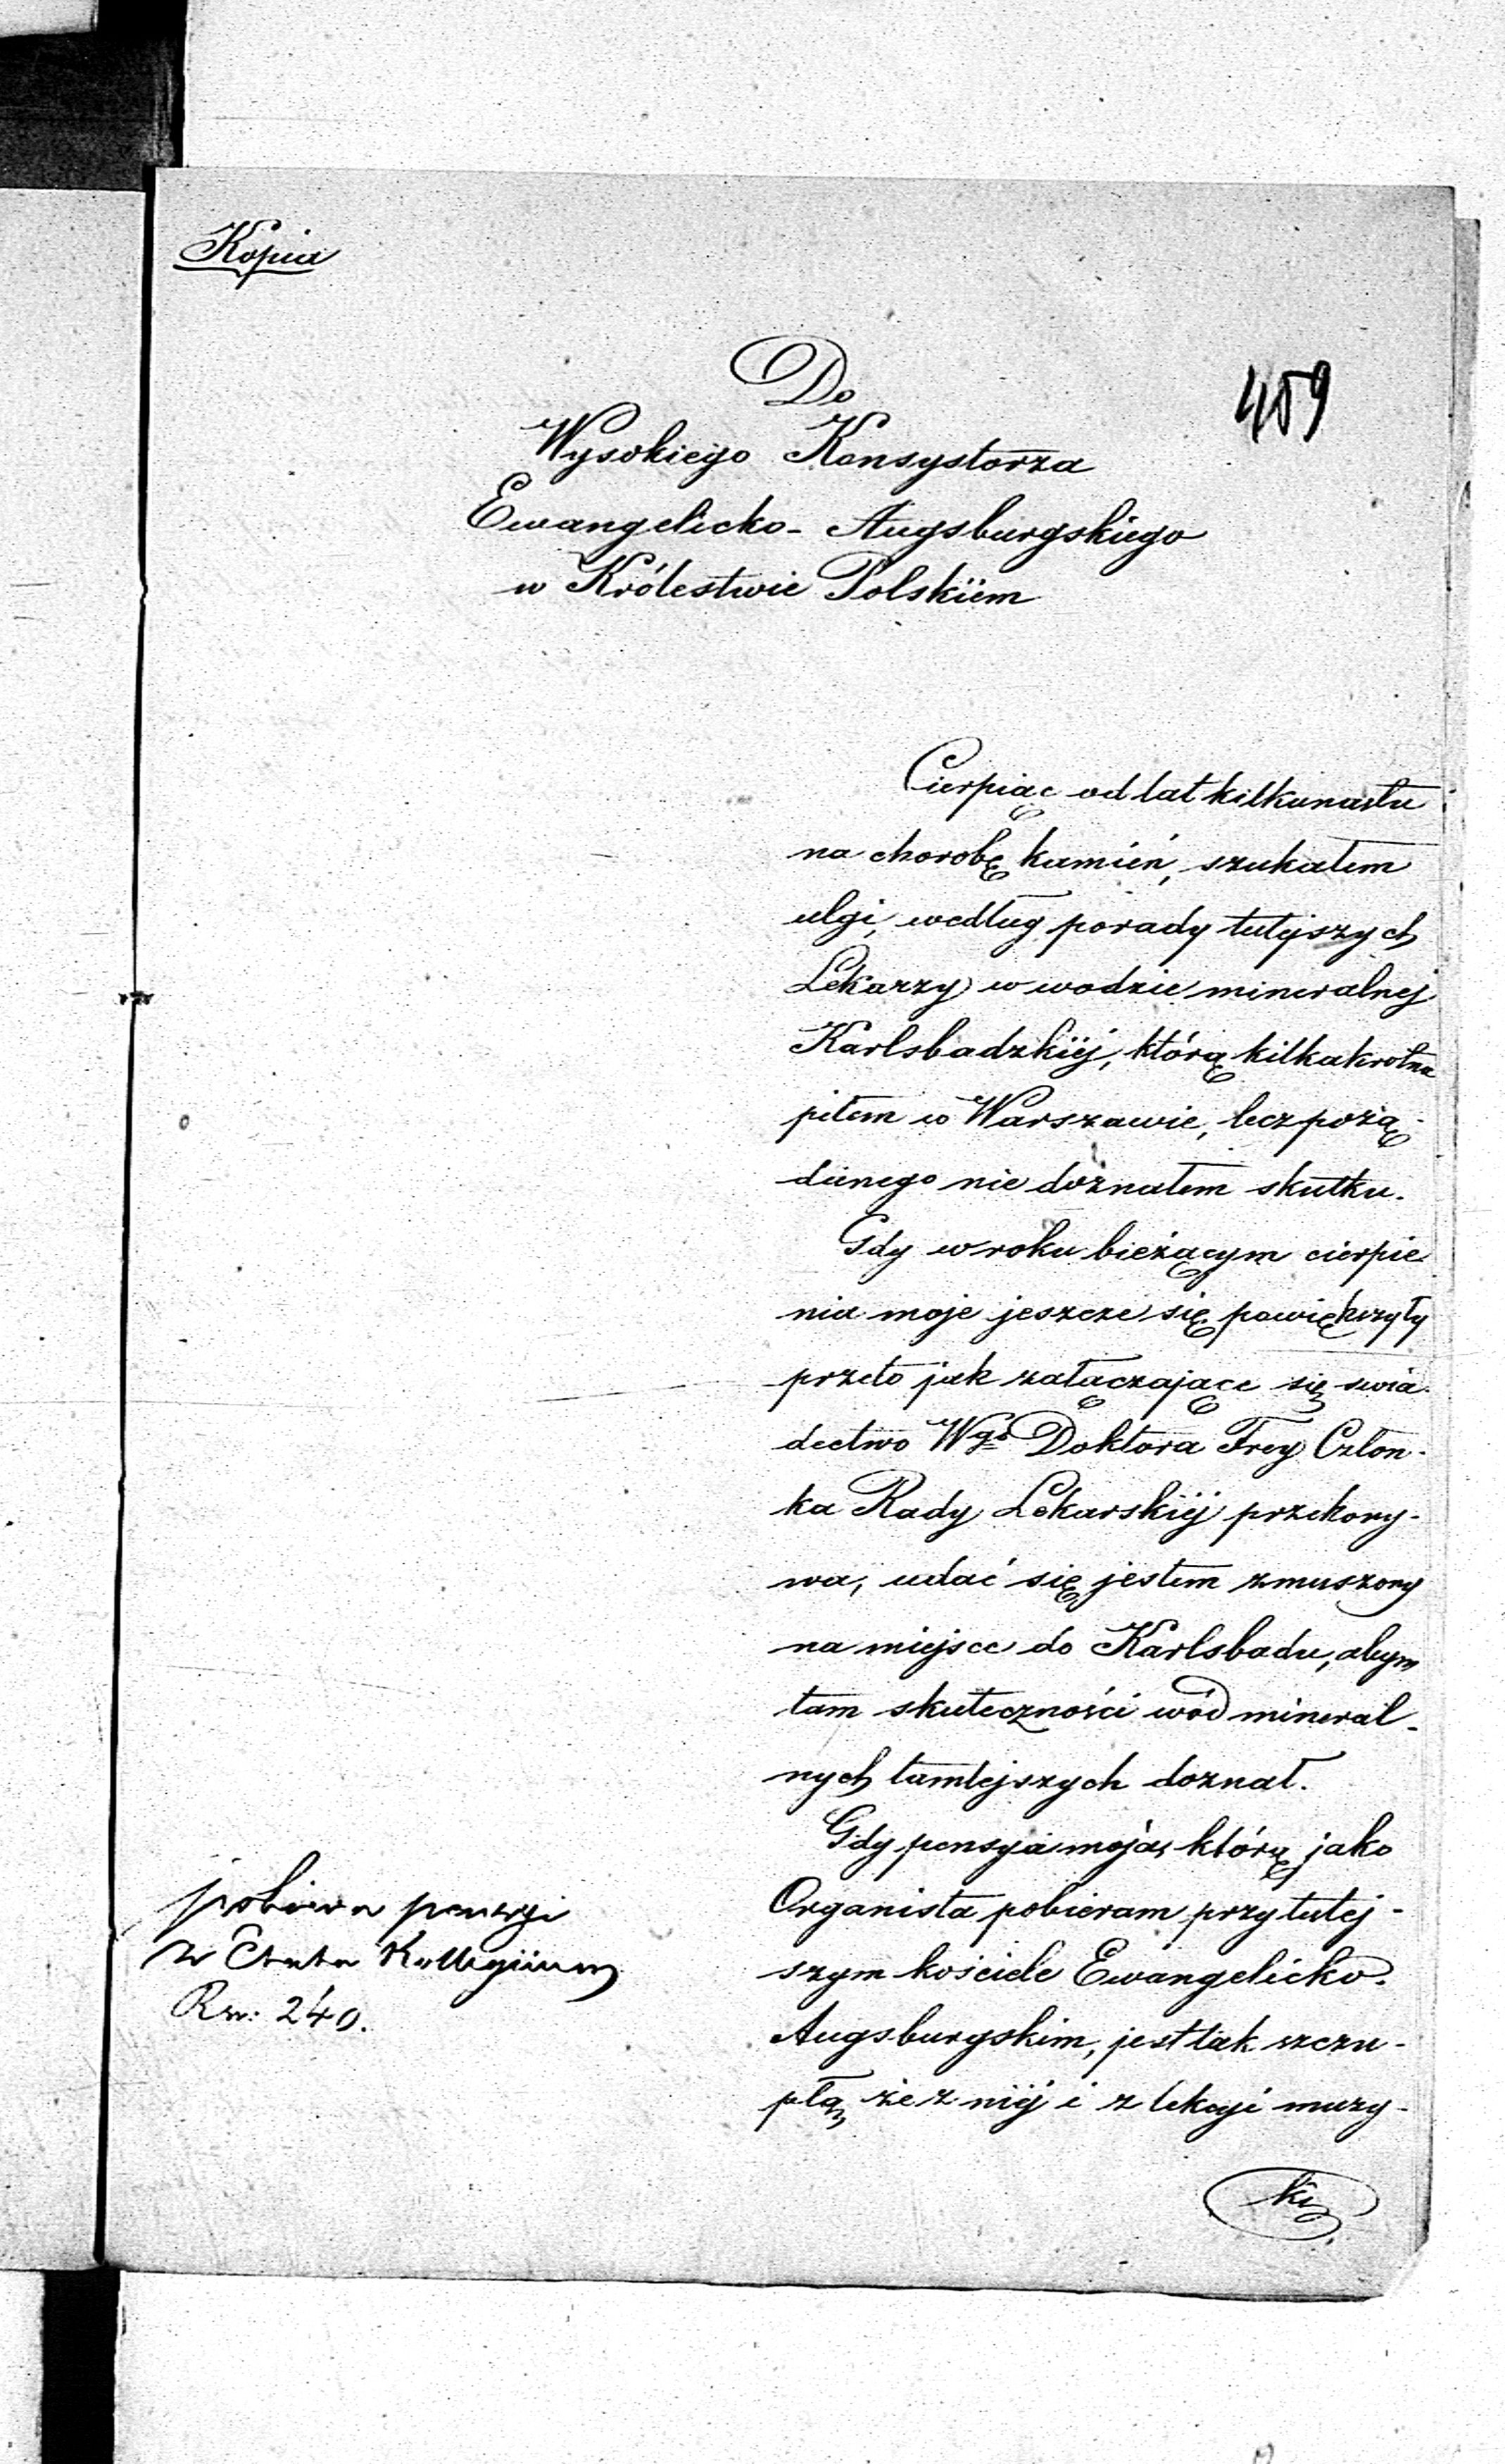 Kopia
459
Do
Wysokiego Konsystorza
Ewangelicko-Augsburgskiego
w Królestwie Polskiem
Cierpiąc od lat kilkunastu
na chorobę kamień, szukałem
ulgi, według porady tutejszych
Lekarzy w wodzie mineralnej
Karlsbadzkiéj, którą kilkakrotnie
piłem w Warszawie, lecz pożą-
danego nie doznałem skutku.
Gdy w roku bieżącym cierpie-
nia moje jeszcze się powiększyły
przeto jak załączające się swia-
dectwo Wgo Doktora Frey Człon-
ka Rady Lekarskiéj przekony-
wa, udać się jestem zmuszony
na miejsce do Karlsbadu, abym
tam skuteczności wód mineral-
nych tamtejszych doznał.
Gdy pensya moja, którą jako
Organista pobieram przy tutej-
szym kościele Ewangelicko-
Augsburgskim, jest tak szczu-
płą, że z niéj i z lekcyi muzy-
ki
pobiera pensyi
z Kollegium
Rsr: 240.